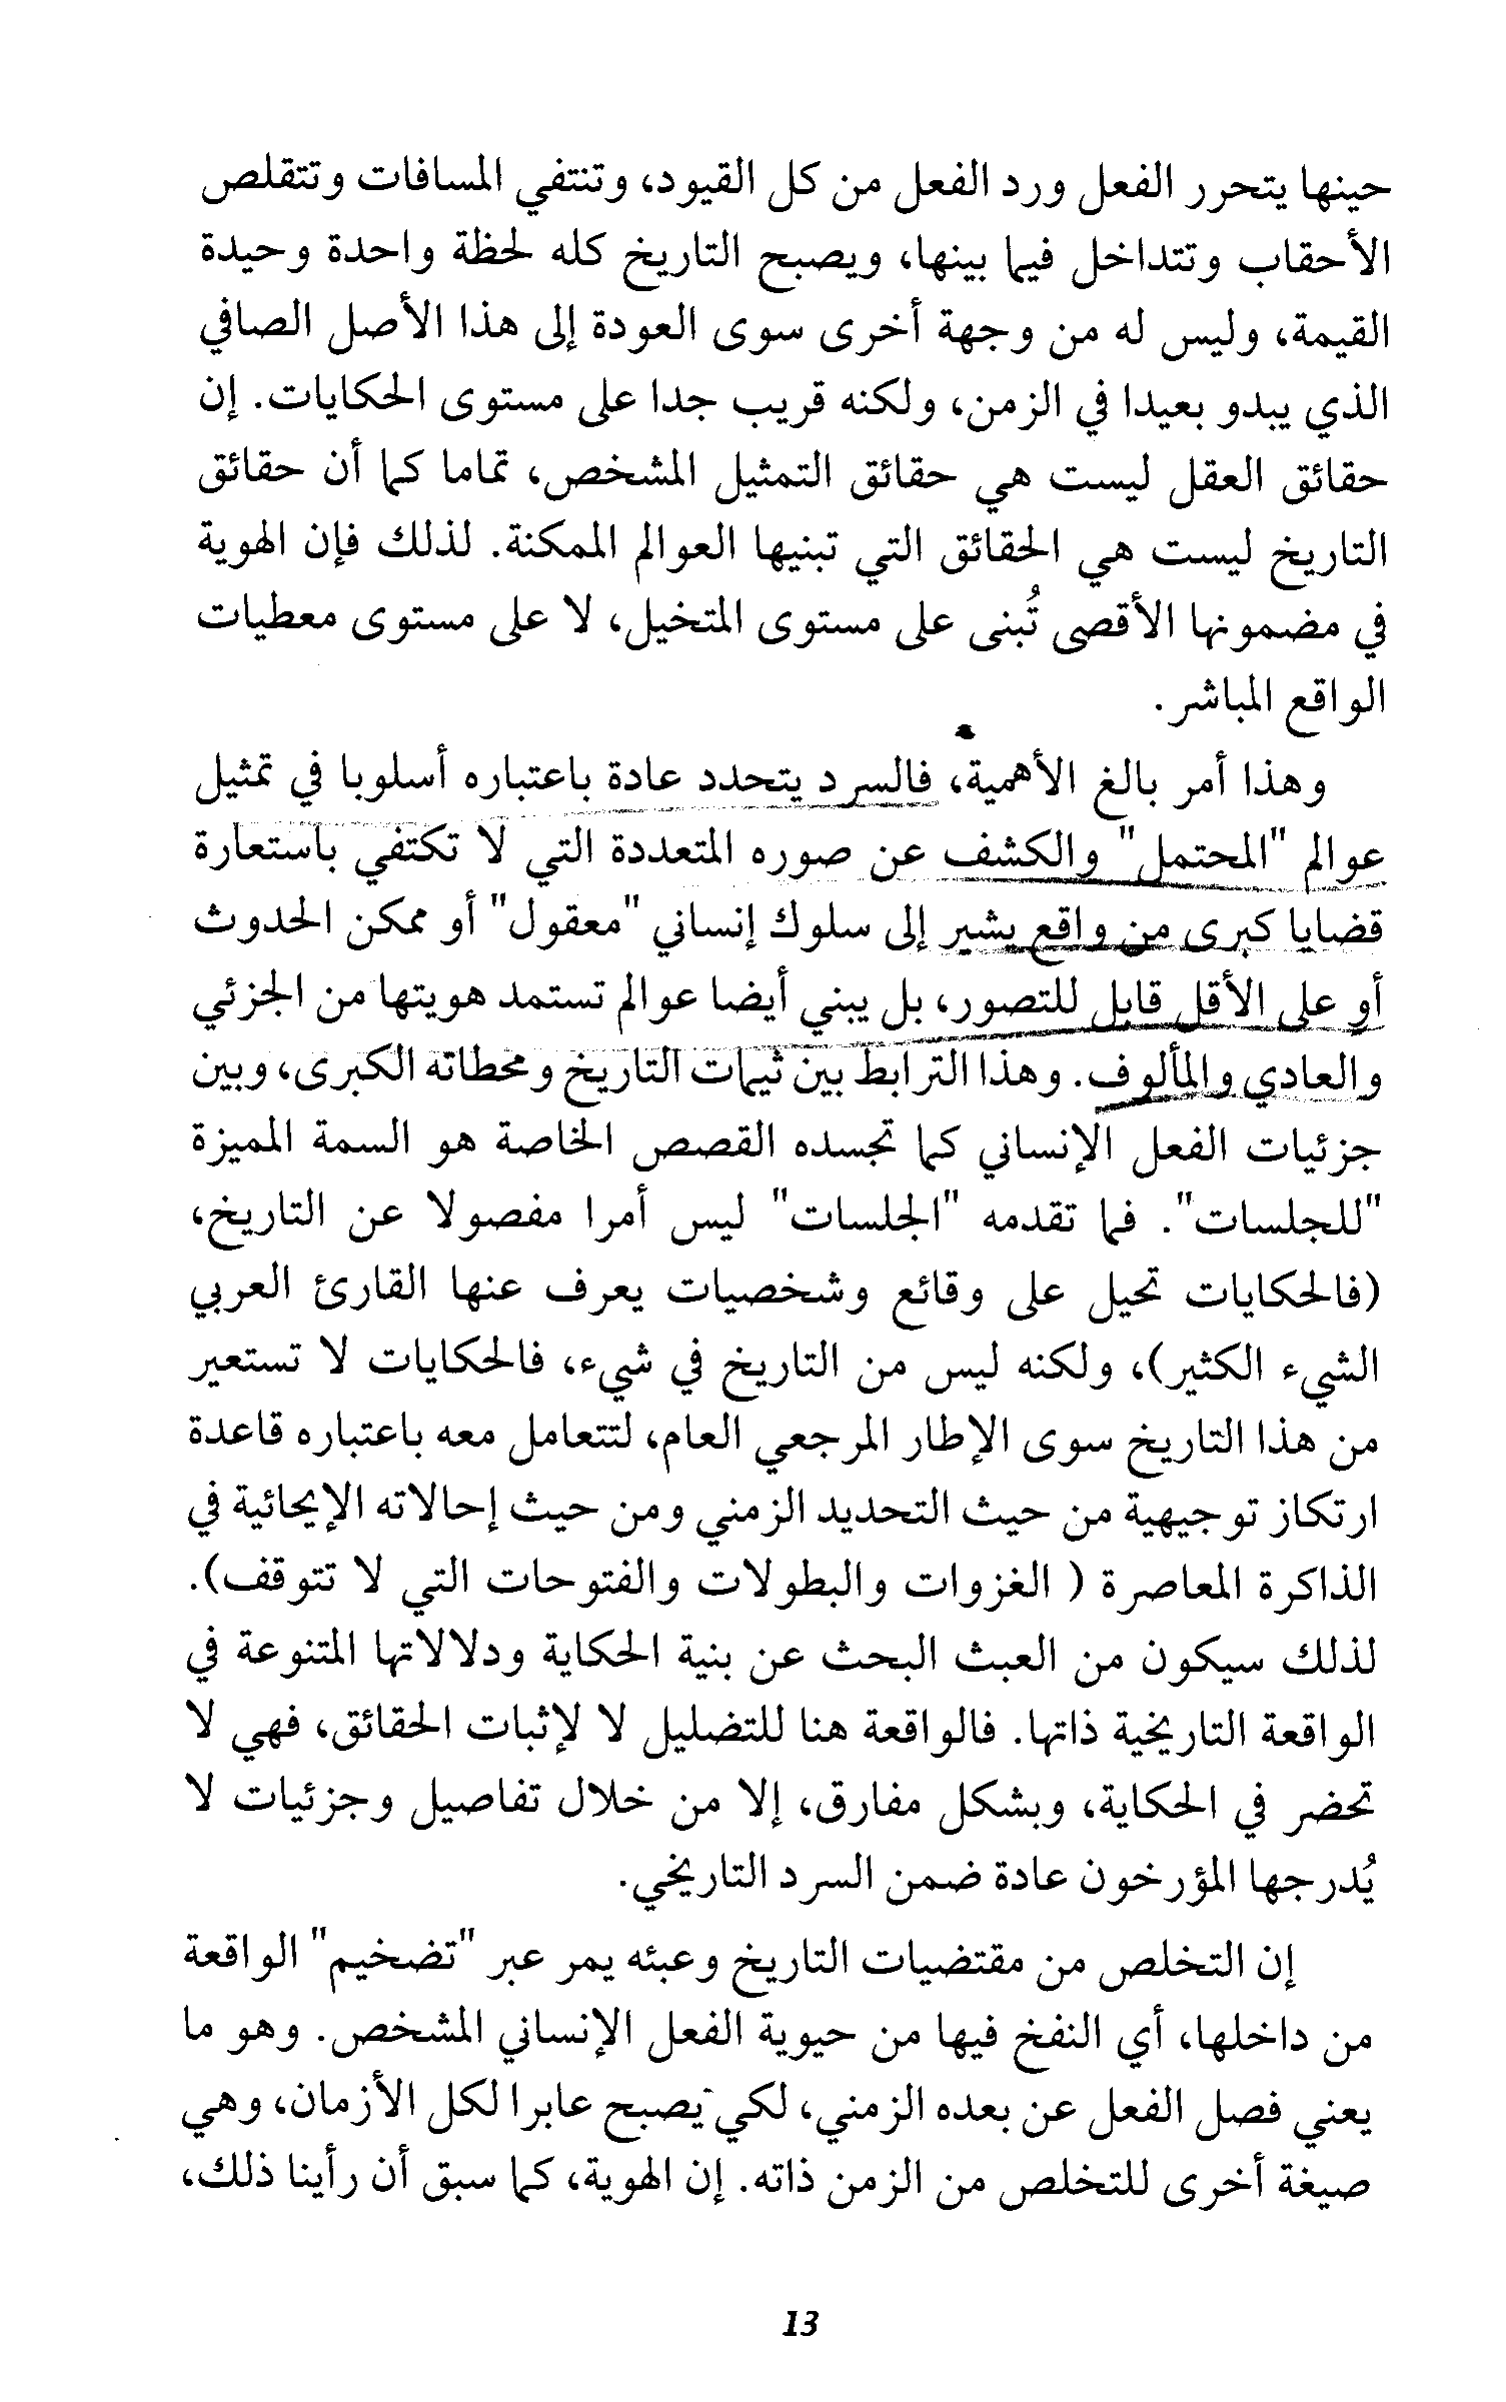 حينها يتحرر الفعل ورد الفعل من كل القيود، وتنتفي المسافات وتتقلص
الأحقاب وتتداخل فيما بينها، ويصبح التاريخ كله لحظة واحدة وحيدة
القيمة، وليس له من وجهة أخرى سوى العودة إلى هذا الأصل الصافي
الذي يبدو بعيدا في الزمن، ولكنه قريب جدا على مستوى الحكايات. إن
حقائق العقل ليست هي حقائق التمثيل المشخص، تماما كما أن حقائق
التاريخ ليست هي الحقائق التي تبنيها العوالم الممكنة. لذلك فإن الهوية
في مضمونها الأقصى تُبنى على مستوى المتخيل، لا على مستوى معطيات
الواقع المباشر.
وهذا أمر بالغ الأهمية، فالسرد يتحدد عادة باعتباره أسلوبا في تمثيل
عوالم "المحتمل" والكشف عن صوره المتعددة التي لا تكتفي باستعارة
قضايا كبرى من واقع يشير إلى سلوك إنساني "معقول" أو ممكن الحدوث
أو على الأقل قابل للتصور، بل يبني أيضا عوالم تستمد هويتها من الجزئي
والعادي والمألوف. وهذا الترابط بين ثيمات التاريخ ومحطاته الكبرى، وبين
جزئيات الفعل الإنساني كما تجسده القصص الخاصة هو السمة المميزة
"للجلسات". فما تقدمه "الجلسات" ليس أمرا مفصولا عن التاريخ،
(فالحكايات تحيل على وقائع وشخصيات يعرف عنها القارئ العربي
الشيء الكثير)، ولكنه ليس من التاريخ في شيء، فالحكايات لا تستعير
من هذا التاريخ سوى الإطار المرجعي العام، لتتعامل معه باعتباره قاعدة
ارتكاز توجيهية من حيث التحديد الزمني ومن حيث إحالاته الإيحائية في
الذاكرة المعاصرة ( الغزوات والبطولات والفتوحات التي لا تتوقف).
لذلك سيكون من العبث البحث عن بنية الحكاية ودلالاتها المتنوعة في
الواقعة التاريخية ذاتها. فالواقعة هنا للتضليل لا لإثبات الحقائق، فهي لا
تحضر في الحكاية، وبشكل مفارق، إلا من خلال تفاصيل وجزئيات لا
يُدرجها المؤرخون عادة ضمن السرد التاريخي.
إن التخلص من مقتضيات التاريخ وعبئه يمر عبر "تضخيم" الواقعة
من داخلها، أي النفخ فيها من حيوية الفعل الإنساني المشخص. وهو ما
يعني فصل الفعل عن بعده الزمني، لكي يصبح عابرا لكل الأزمان، وهي
صيغة أخرى للتخلص من الزمن ذاته. إن الهوية، كما سبق أن رأينا ذلك،
13